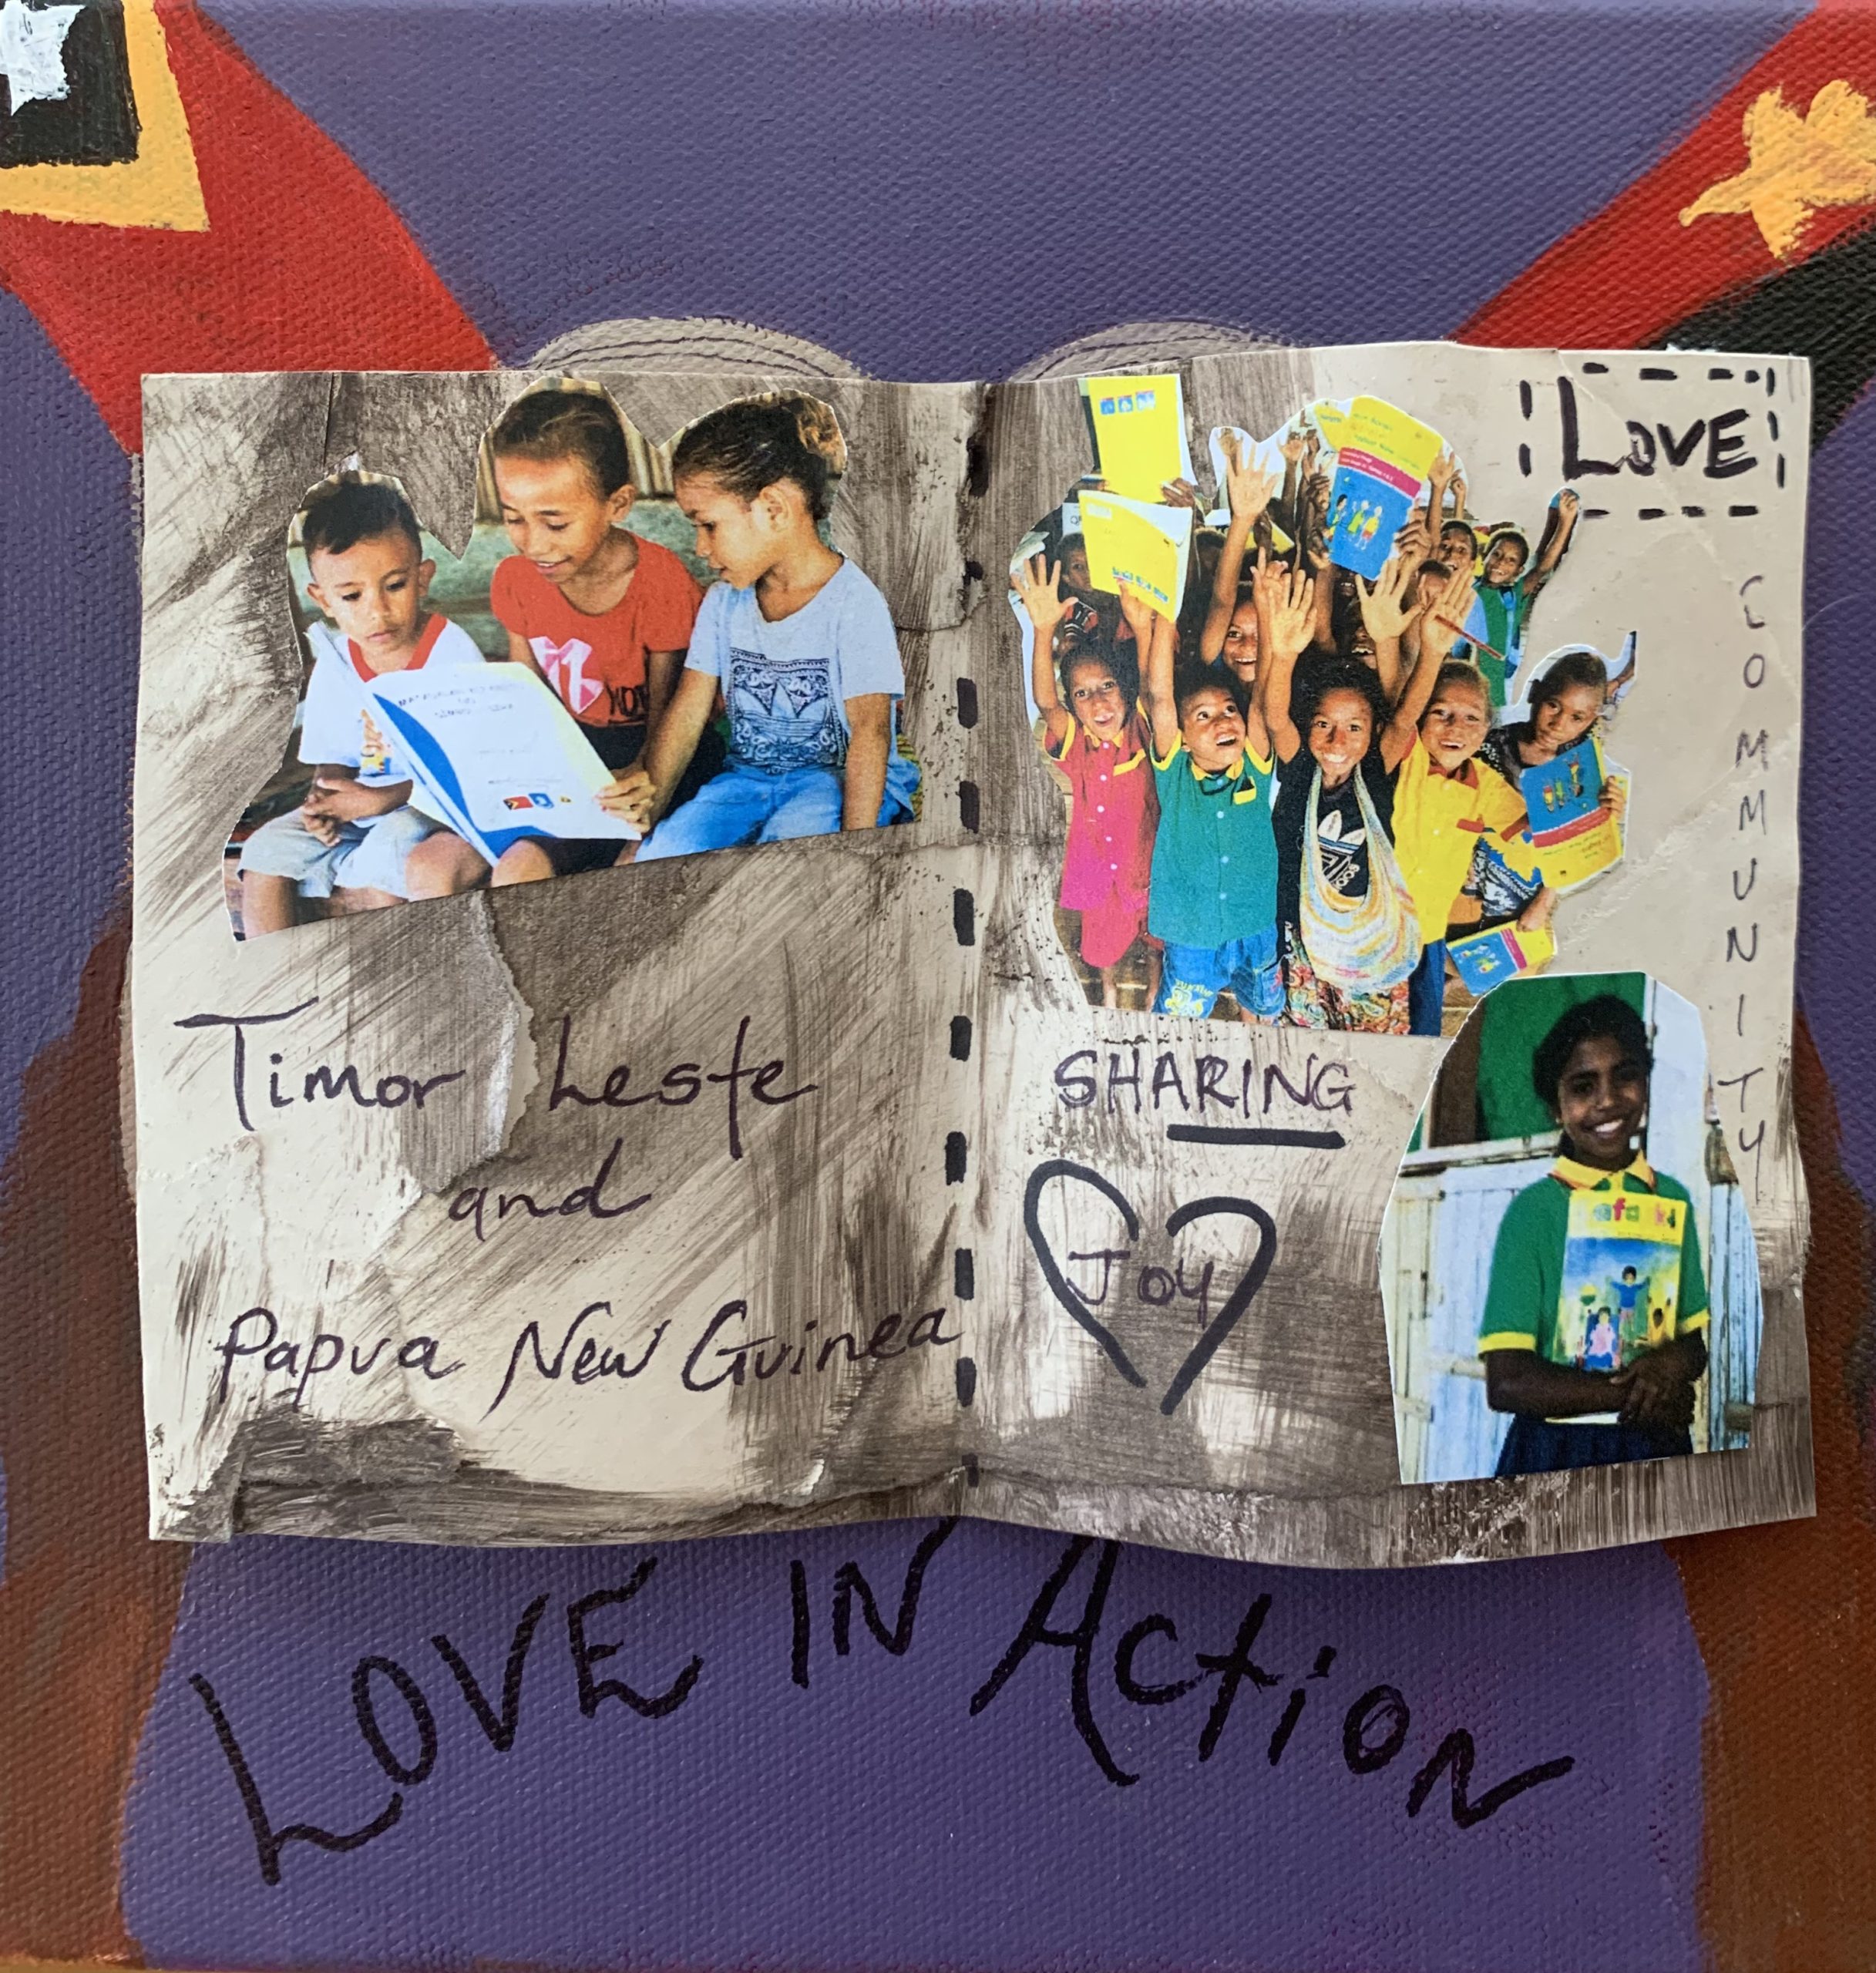 Timor Leste
and
Papua New Guinea
LOVE
COMMUNITY
SHARING
Joy
LOVE IN Action